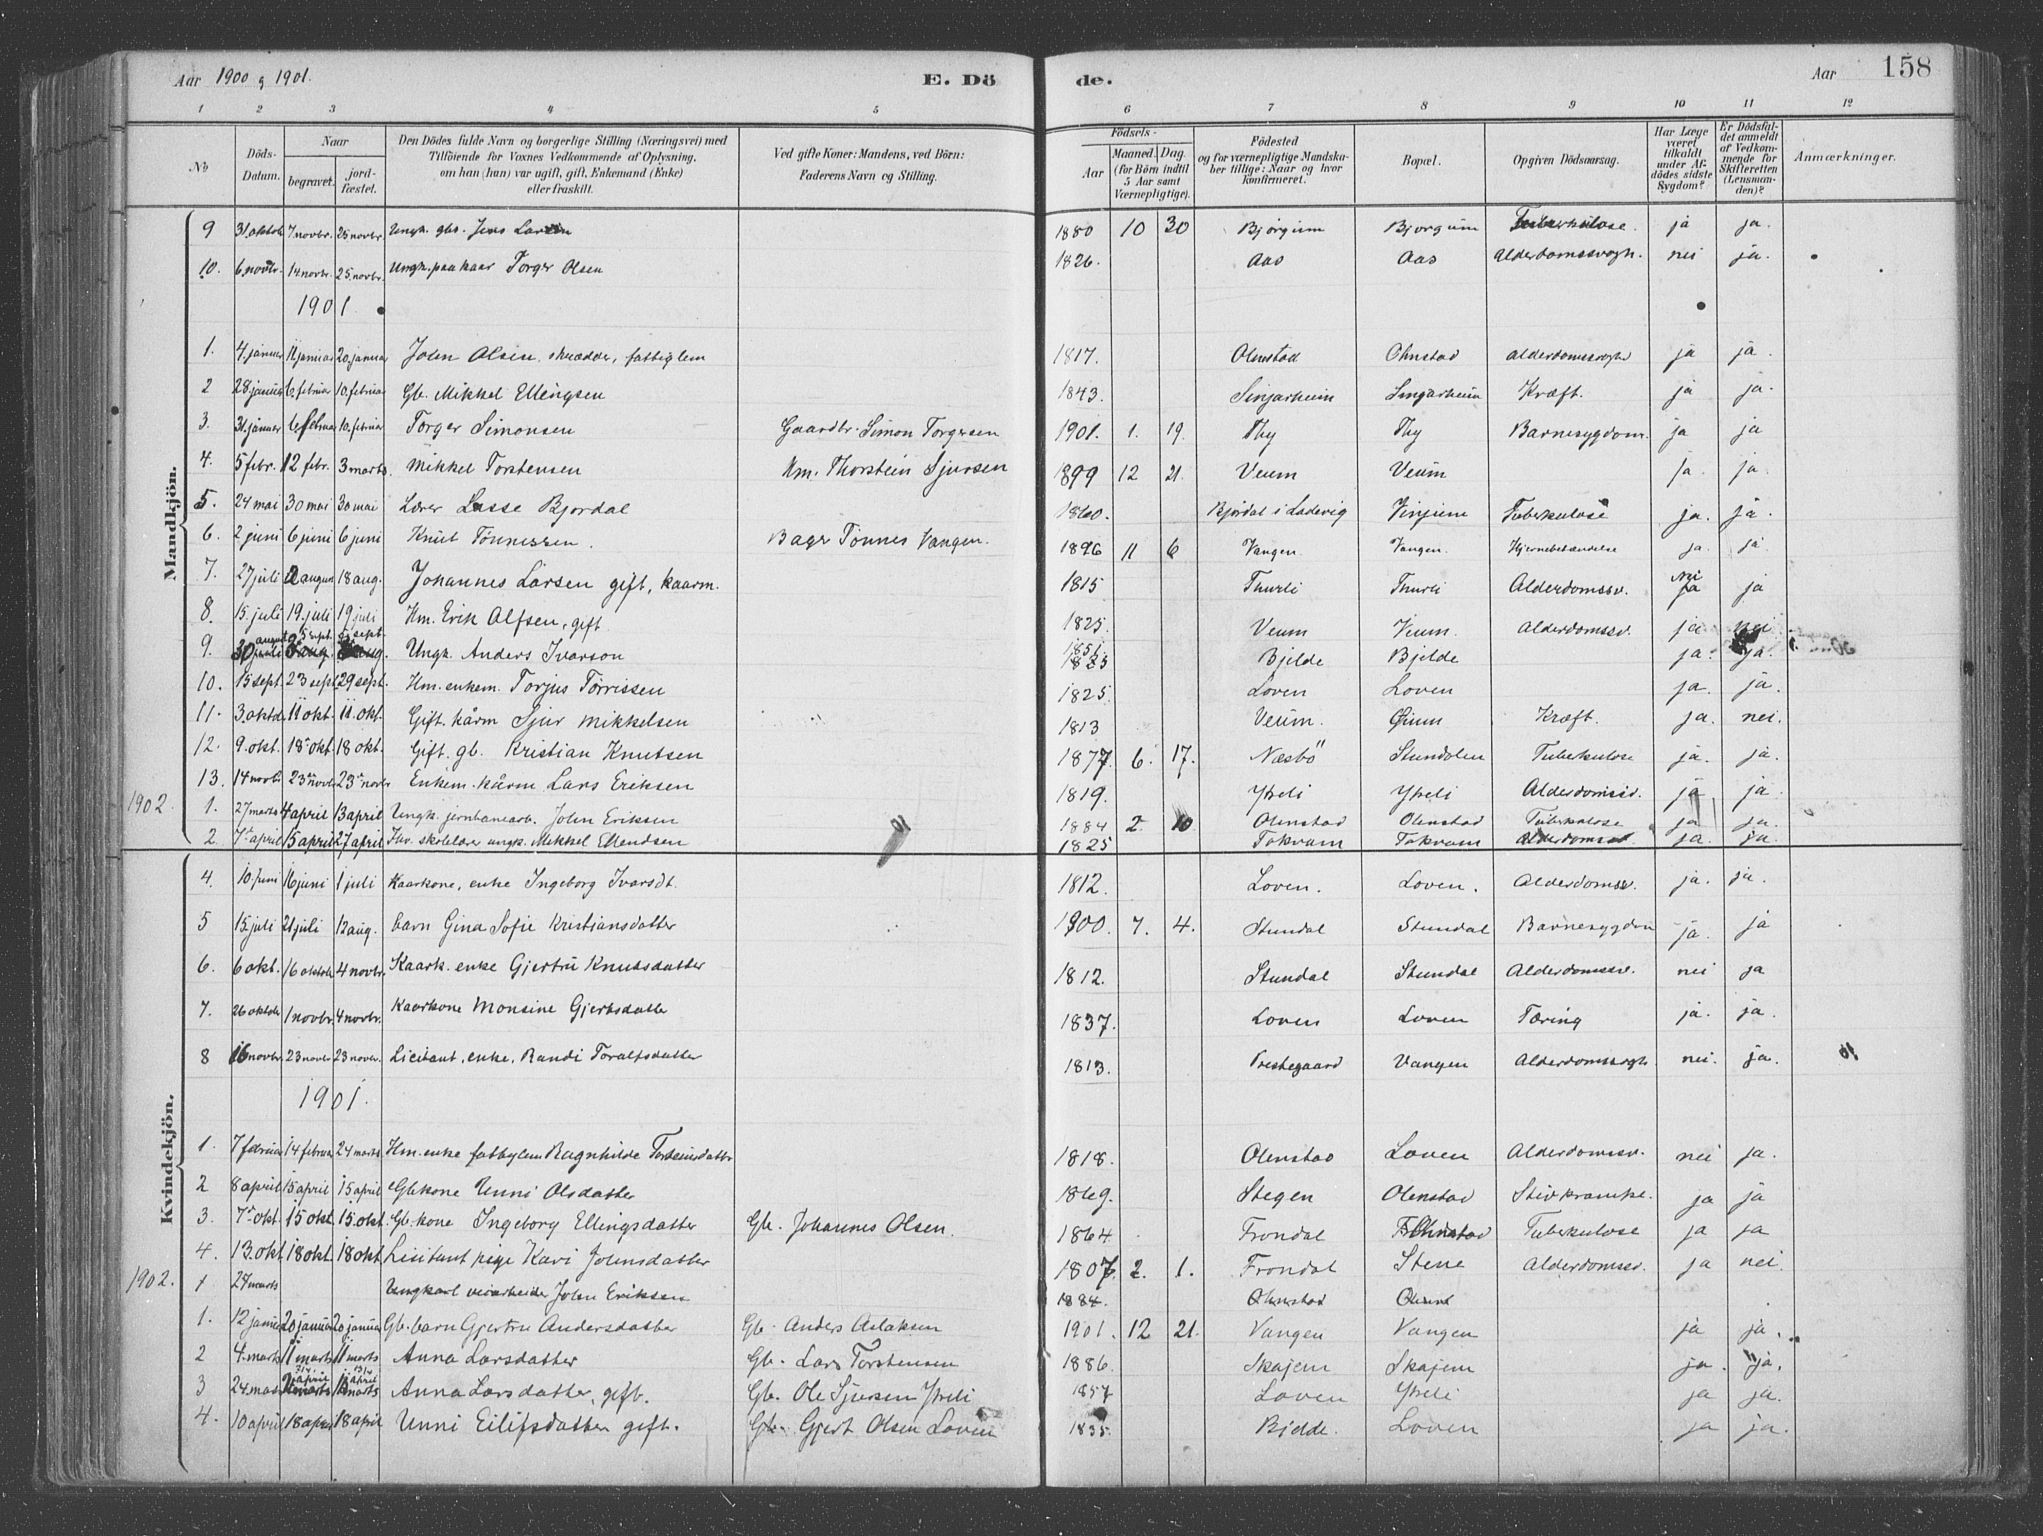 Aar 1900 & 1901. E. Dö de. Aar 158
1 2 3 4 5 6 7 8 9 10 11 12
No Döds-Datum. Naar begravet. jordfæstet. Den Dödes fulde Navn og borgerlige Stilling (Næringsvei) med Tilföiende for Voxnes Vedkommende af Oplysning, om han (hun) var ugift, gift, Enkemand (Enke) eller fraskilt. Ved gifte Koner: Mandens, ved Börn: Faderens Navn og Stilling. Födsels- Aar Maaned. Dag. (for Börn indtil 5 Aar samt Værnepligtige). Födested og for værnepligtige Mandskaber tillige: Naar og hvor konfirmeret. Bopæl. Opgiven Dödsaarsag. Har Læge været tilkaldt under Afdödes sidste Sygdom? Er Dödsfaldet anmeldt af Vedkommende for Skifteretten (Lensmanden)? Anmærkninger.
Mandkjön.
9 31. oktob 7 novbr. 25 novbr. Ungk. gbs. Jens Larsen 1880 10 30 Bjørgum Bjorgum Tuberkulose. ja ja.
10. 6. novbr. 14 novbr. 25. novbr. Ungk. paa kaar Torger Olsen 1826. Aas Aas Alderdomssvagh. nei ja.
1901.
1. 4. januar 11 januar 20. januar John Olsen, skrædder, fattiglem 1817. Ohnstad Ohnstad Alderdomssvagh ja ja.
2 28. januar 6. februar 10. februar Gb. Mikkel Ellingsen 1843. Sinjarheim Sinjarheim Kræft. ja ja.
3. 31. januar 6. februar 10. februar Torger Simonsen Gaardbr. Simon Torgersen 1901. 1. 19. Thy Thy Barnesygdom. ja ja
4. 5 febr. 12 febr. 3 marts. Mikkel Torstensen Hm. Thorstein Sjursen 1899 12 21. Veum Veum ja. ja.
5. 24 mai 30 mai 30 mai Lærer Lasse Bjordal 1860. Bjórdal i Ladevig Vinjum Tuberkulose ja. ja.
6. 2 juni 6 juni 6 juni Knut Tönnessen. Bager Tönnes Vangen. 1896 11 6 Vangen. Vangen. Hjernebetændelse ja. ja
7. 27 juli 2 august 18 aug. Johannes Larsen gift, kaarm. 1815 Thurli Thurli Alderdomssv. nei ja ja
8. 15. juli 19. juli 19 juli Hm. Erik Alfsen, gift 1825. Veum Veum. Alderdomssv. ja nei
9. 30 august juli 5 sept. aug. 5 sept. aug. Ungk. Anders Ivarson 1851. Bjelde Bjelde ja. ja.
10. 15 sept. 23 sept. 29 sept. Hm. enkem. Torjus Torrissen 1825. Loven Loven ja. ja.
11. 3. oktob 11 okt. 11. okt. Gift. kårm Sjur Mikkelsen 1813 Veum. Öium Kræft. ja. nei.
12. 9. okt. 18 okt. 18 okt. Gift. gb. Kristian Knutsen 1877 6. 17. Næsbö Stundalen Tuberkulose ja. ja.
13. 14 novbr 23 novbr 23 novbr Enkem. kårm Lars Eriksen 1819. Ytreli Ytreli Alderdomssv. ja ja.
1902. 1. 27 marts 4 april 13 april Ungk. jernbanearb. John Eriksen 1884 2. 10 Ohnstad Ohnstad Tuberkulose ja ja.
2. 7 april 15 april 27 april Fhv. skolelærer ungk. Mikkel Ellendsen 1825 Tokvam Tokvam Alderdomssv. ja. ja.
Kvindekjön.
4. 10. juni 16 juni 1 juli Kaarkone, enke Ingeborg Ivarsdt. 1812. Loven. Loven. Alderdomssv. ja. ja.
5 15. juli 21 juli 12 aug. barn Gina Sofie Kristiansdatter 1900. 7. 4. Stundal Stundal Barnesygdom ja. ja
6. 6 okt. 16 oktob 4 novbr. Kaark. enke Gjertru Knutsdatter 1812. Stundal Stundal Alderdomssv. nei ja
7. 26 oktob 1 novbr. 4 novbr. Kaarkone Monsine Gjertsdatter 1837. Loven Loven Tæring ja. ja.
8 16 novbr. 23 novbr 23 novbr. Licitant, enke, Randi Toralfsdatter 1813. Prestegaard Vangen Alderdomssvgh. nei. ja.
1901.
1. 7 februar 14 februar 24 marts Hm. enke fattiglem Ragnhilde Torsteinsdatter 1818. Ohnstad Loven Alderdomssv. nei ja.
2 8 april 15 april 15 april Gbkone Unni Olsdatter 1869. Stegen Ohnstad Stivkrampe. ja ja
3. 7 okt. 15 okt. 15. okt. Gb. kone Ingeborg Ellingsdatter Gb. Johannes Olsen. 1864. Frondal Ohnstad Tuberkulose ja ja
4. 13. okt 18 okt. 18 okt Lisitant pige Kari Johnsdatter 1807 2. 1. Frondal Stene Alderdomssv. ja nei.
1902. 1 27 marts Ungkarl veiarbeider John Eriksen 1884. Ohnstad Ohnst
1. 12 januar 20 januar 20 januar Gb. barn Gjertru Andersdatter Gb. Anders Aslaksen 1901. 12 21. Vangen Vangen ja ja.
2 4. marts 11 marts 11 marts Anna Larsdatter Gb. Lars Torstensen 1886. Skajem Skajem ja. ja.
3 24. marts april marts april marts Anna Larsdatter, gift. Gb. Ole Sjursen Ytreli 1857 Loven Ytreli ja ja.
4. 10 april 18 april 18 april Unni Eilifsdatter gift. Gb. Gjert Olsen Loven 1835. Bjelde. Loven ja ja.